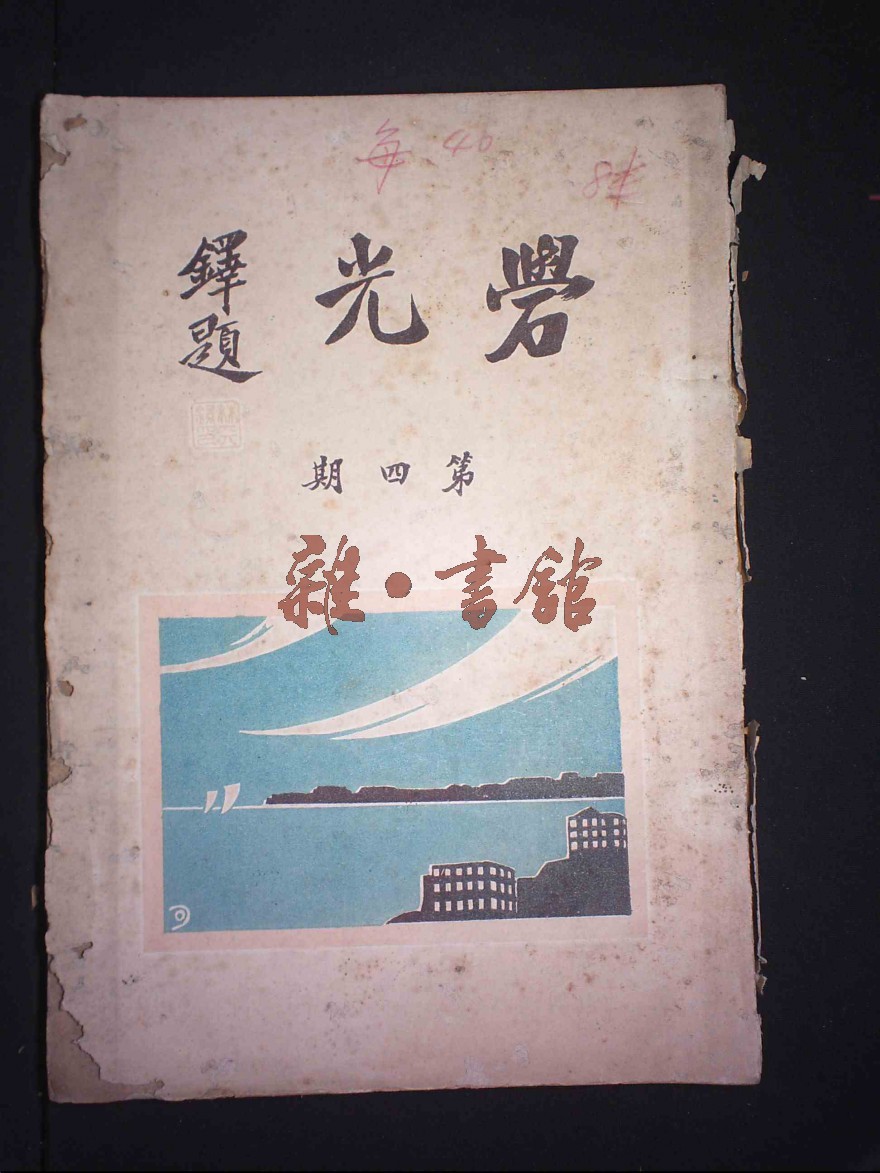 每 40
礐光
鐸題
第四期
雜•書館